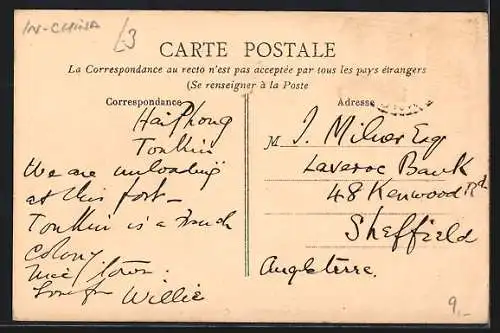 IN-CHINA
£3
CARTE POSTALE
La Correspondance au recto n'est pas acceptée par tous les pays étrangers
(Se renseigner à la Poste
Correspondance
HaiPhong
Tonkin
We are unloading
at this port -
Tonkin is a French
colony.
nice town.
Love fr Willie
Adresse
M. J. Milner Esq
Laveroc Bank
48 Kenwood Rd
Sheffield
Angleterre.
9.-